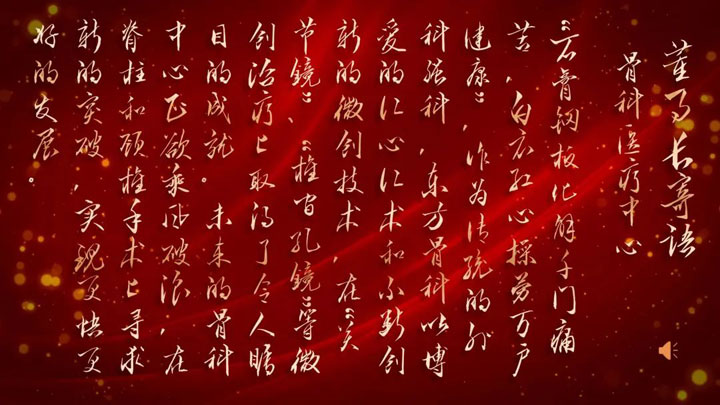 董事长寄语
骨科医疗中心
“石膏钢板化解千门痛
苦，白衣红心操劳万户
健康”，作为传统的外
科强科，东方骨科以博
爱的仁心仁术和不断创
新的微创技术，在“关
节镜”、“椎间孔镜”等微
创治疗上取得了令人瞩
目的成就。未来的骨科
中心正欲乘风破浪，在
脊柱和颈椎手术上寻求
新的突破，实现更快更
好的发展。